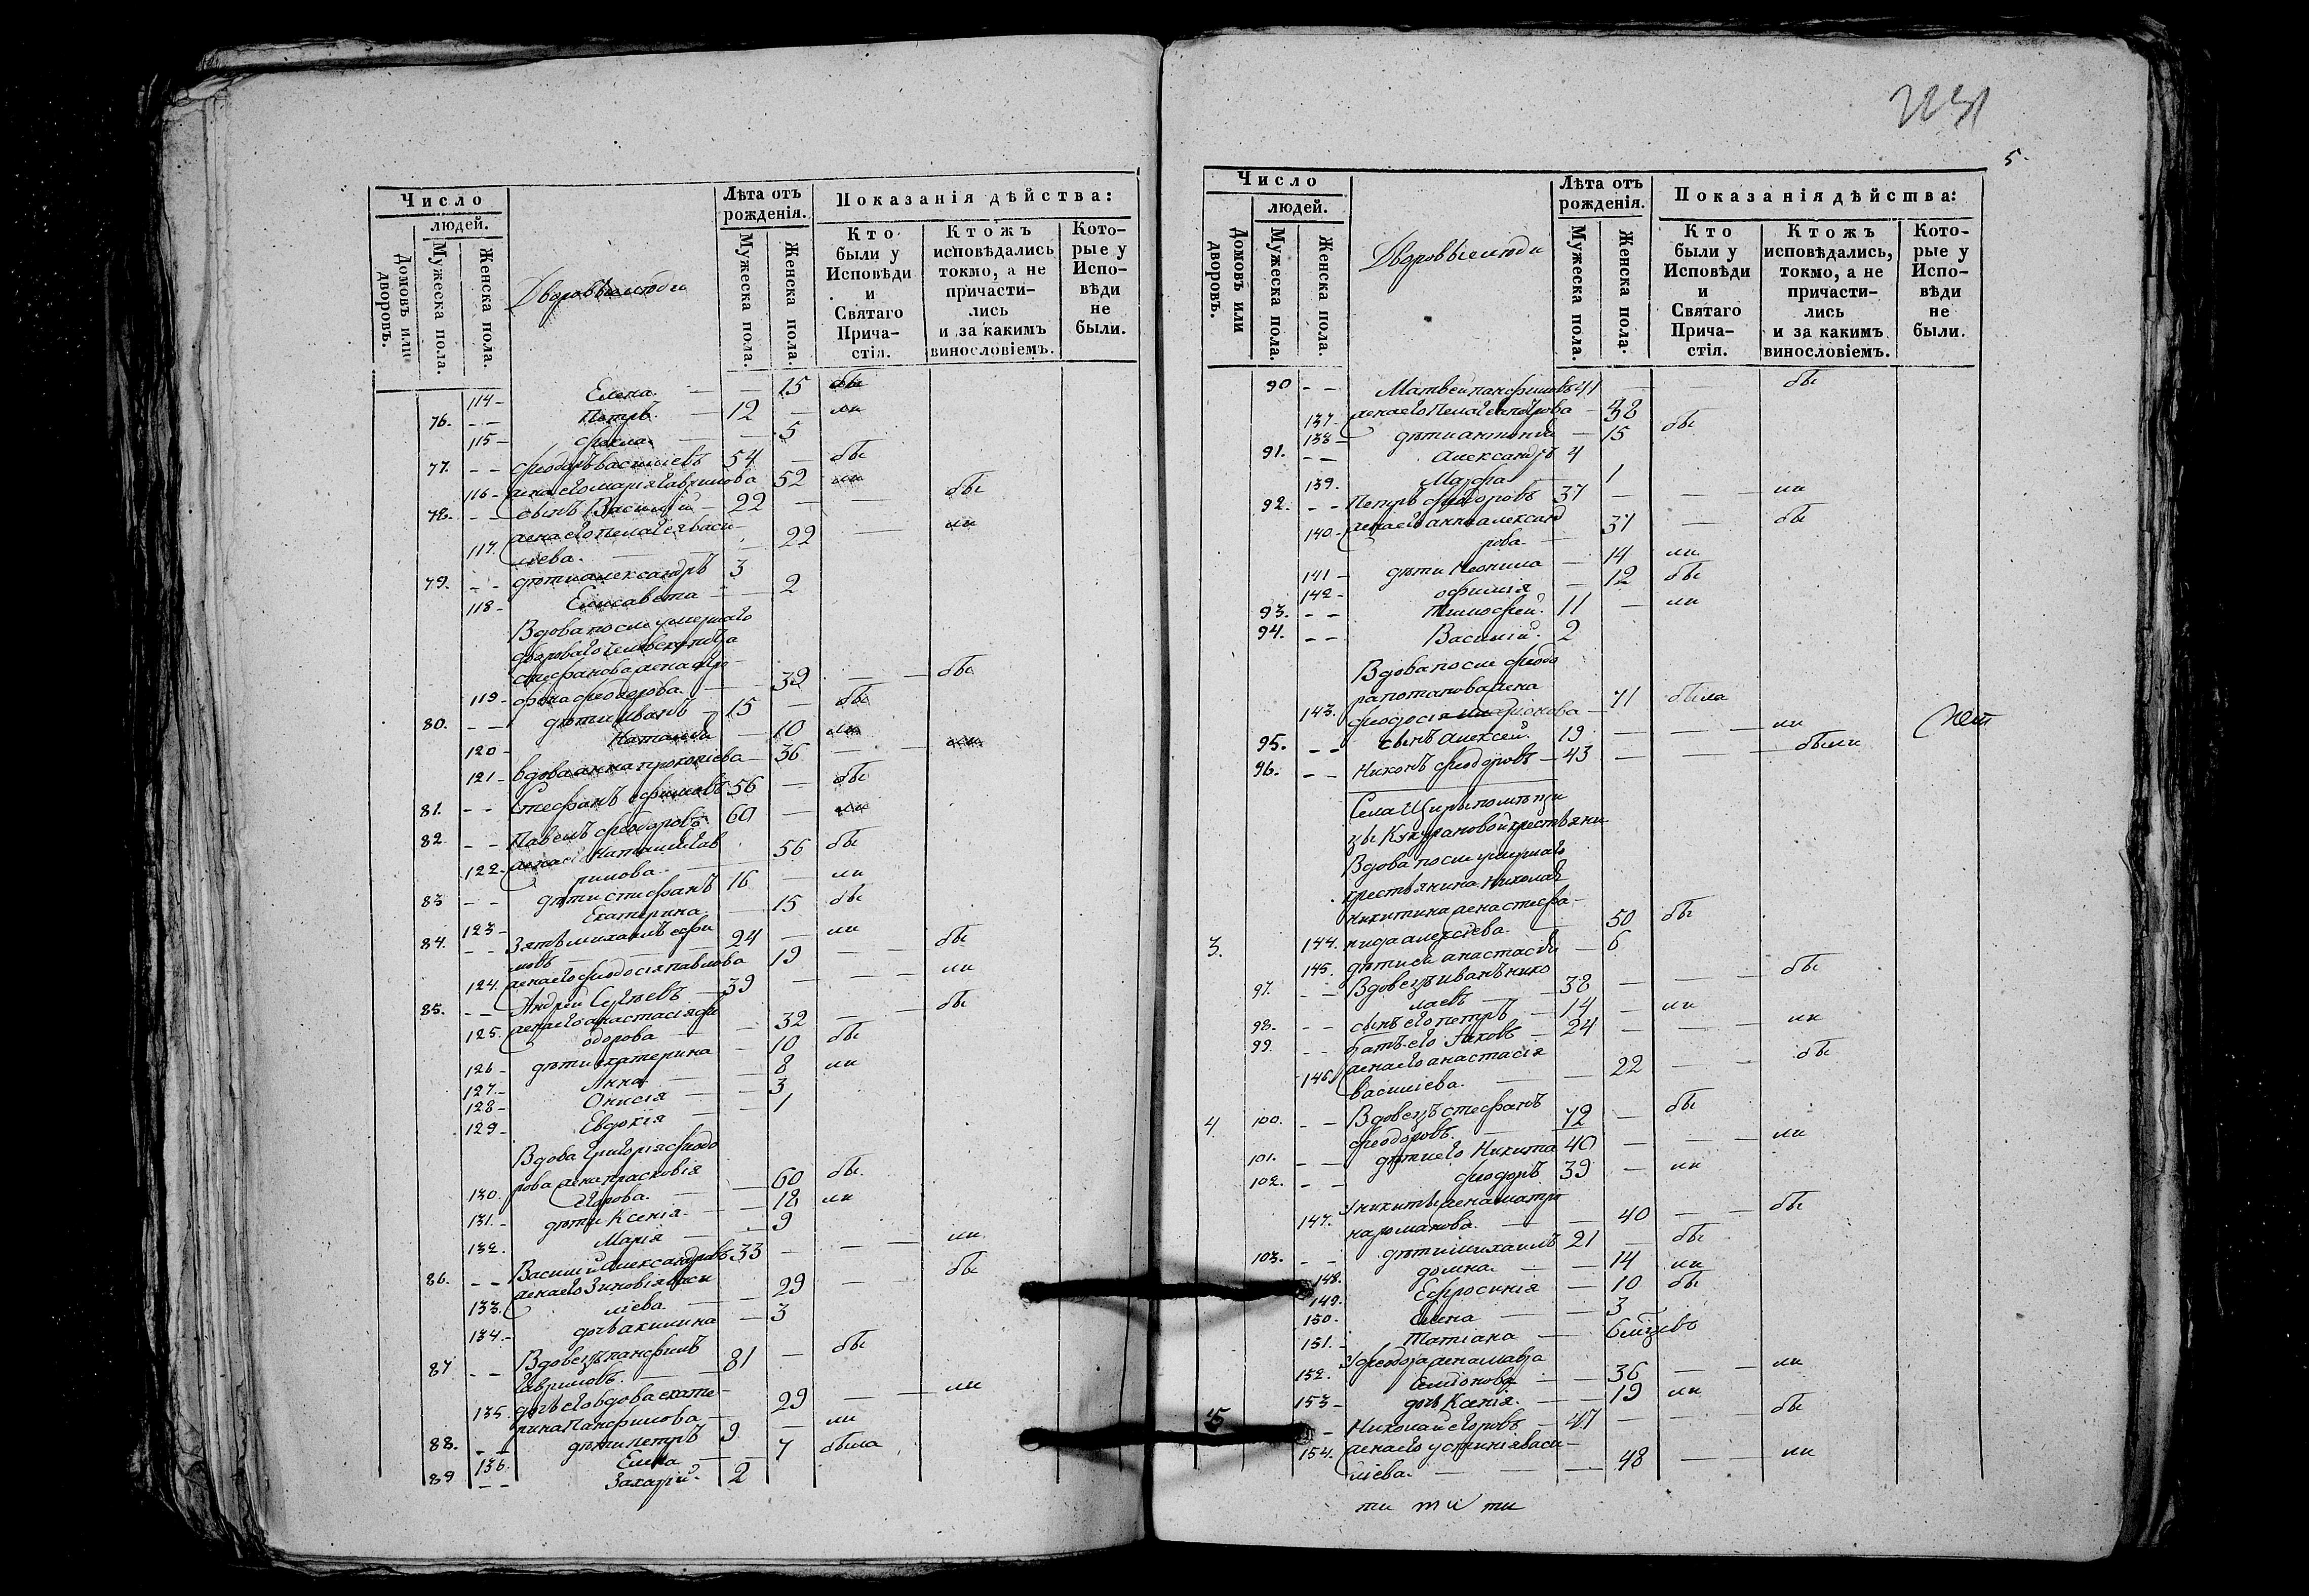 Число
людей.
Домовъ или дворовъ.
Мужеска пола.
Женска пола.
Дворовые люди
Лѣта отъ рожденія.
Мужеска пола.
Женска пола.
Показанія дѣйства:
Кто были у Исповѣди и Святаго Прича-стія.
Ктожъ исповѣдались токмо, а не причасти-лись и за какимъ винословіемъ.
Кото-рые у Испо-вѣди не были.
114 - Елена. — — 15 бы
76. - - Петръ. — 12 — ли
115 - Фекла — — 5
77. - - Феодоръ Василіевъ 54 — бы
116 - жена его Марія Гаврилова 52 ли
78. - - сынъ Василій - 22 — — бы
117. жена его Пелагея Васи-
ліева. — — 22 — — ли
79. - - дѣти Александръ 3
118 - Елисавета — — 2
Вдова после умершаго
двороваго человека Петра
Стефанова жена
119 - Феодорова. — — 39 — — бы
80. - - дѣти Иванъ — 15 — бы
120 - Наталія — 10 ли
121 - вдова Анна Прокопіева — 36 — — ли
81. - - Стефанъ Ефимовъ 56 — бы
82. - - Павелъ Феодоровъ 60 — ли
122 - жена его Наталія Гав
рилова. — 56 бы
83 - - дѣти Стефанъ 16 — ли
123 - Екатерина — 15 бы
84. - - Зять Михаилъ Ефи
мовъ — — 24 — ли
124. жена его Феодосія Павлова 19 — бы
85. - - Андрей Сергѣевъ — 39 — — ли
125. жена его Анастасія Фе
одорова — — 32 — — бы
126 - дѣти Екатерина — 10 бы
127. - Анна — — 8 ли
128 - Онисія — — 3
129 - Евдокія — — 1
Вдова Григорія Феодо
рова жена Прасковія
130. Егорова. — — 60 бы
131. - дѣти Ксенія. — — 18 ли
132. Марія — — 9
86. - - Василій Александровъ 33 — — ли
133. жена его Зиновія Васи
ліева — — 29 — бы
134. - дочь Акилина — 3
87 - - Вдовецъ Панфилъ
Гавриловъ. — — 81 — бы
135. дочь его вдова Екате-
рина Панфилова — 29 — — ли
88. - - дѣти Петръ 9 — ли
136. Елена — — 7 была
89 - - Захарій. 2
5.
Число
людей.
Домовъ или дворовъ.
Мужеска пола.
Женска пола.
Дворовые люди
Лѣта отъ рожденія.
Мужеска пола.
Женска пола.
Показанія дѣйства:
Кто были у Исповѣди и Святаго Прича-стія.
Ктожъ исповѣдались, токмо, а не причасти-лись и за какимъ винословіемъ.
Кото-рые у Испо-вѣди не были.
90 - - Матвей Панфиловъ 41 — — бы
137 - жена его Пелагея Петрова — 38
138 - дѣти — 15 бы
91. - - Александръ 4
139. Марфа — 1
92. - - Петръ Феодоровъ 37 — — ли
140 - жена его Анна Александ
рова — 37 — бы
141 - дѣти Неонила — 14 ли
142 - Офимія — 12 бы
93. - - Тимофей. 11 — ли
94. - - Василій. 2
Вдова после Феодо
ра Потапова жена
143. Феодосія — 71 была
95. - - сынъ Алексей. 19 — — ли нет
96. - - Никонъ Феодоровъ — 43 — — были
Села помѣщи
цы крестьяни
Вдова после умершаго
крестьянина Николая
Никитина жена Стефа-
3. 144. нида Алексіева. — 50 бы
145. дѣти ея Анастасія — 6
97. - - Вдовецъ Иванъ Нико
лаевъ — 38 — — бы
98. - - сынъ его Петръ — 14 — ли
99. - - братъ его Яковъ — 24 — — ли
146. жена его Анастасія
Василіева. — — 22 — — бы
4. 100. - - Вдовецъ Стефанъ
Феодоровъ. — 72 — бы
101. - - дѣти его Никита 40 — — ли
102. - - Феодоръ 39 — ли
У Никиты жена Матро
147. на Романова. — — 40 — — бы
103. - - дѣти Михаилъ 21 — бы
148. Домна. — — 14 ли
149. Ефросинія — 10 бы
150. Елена — — 3
151. - Татіана — близнев
152. У Феодора жена Мавра
Семіонова. — — 36 — — ли
153 - дочь Ксенія. — — 19 ли
5 - Николай Егоровъ — 47 — — бы
154. жена его Устинія Васи-
ліева. — — 48 — — ли
ти ти ти